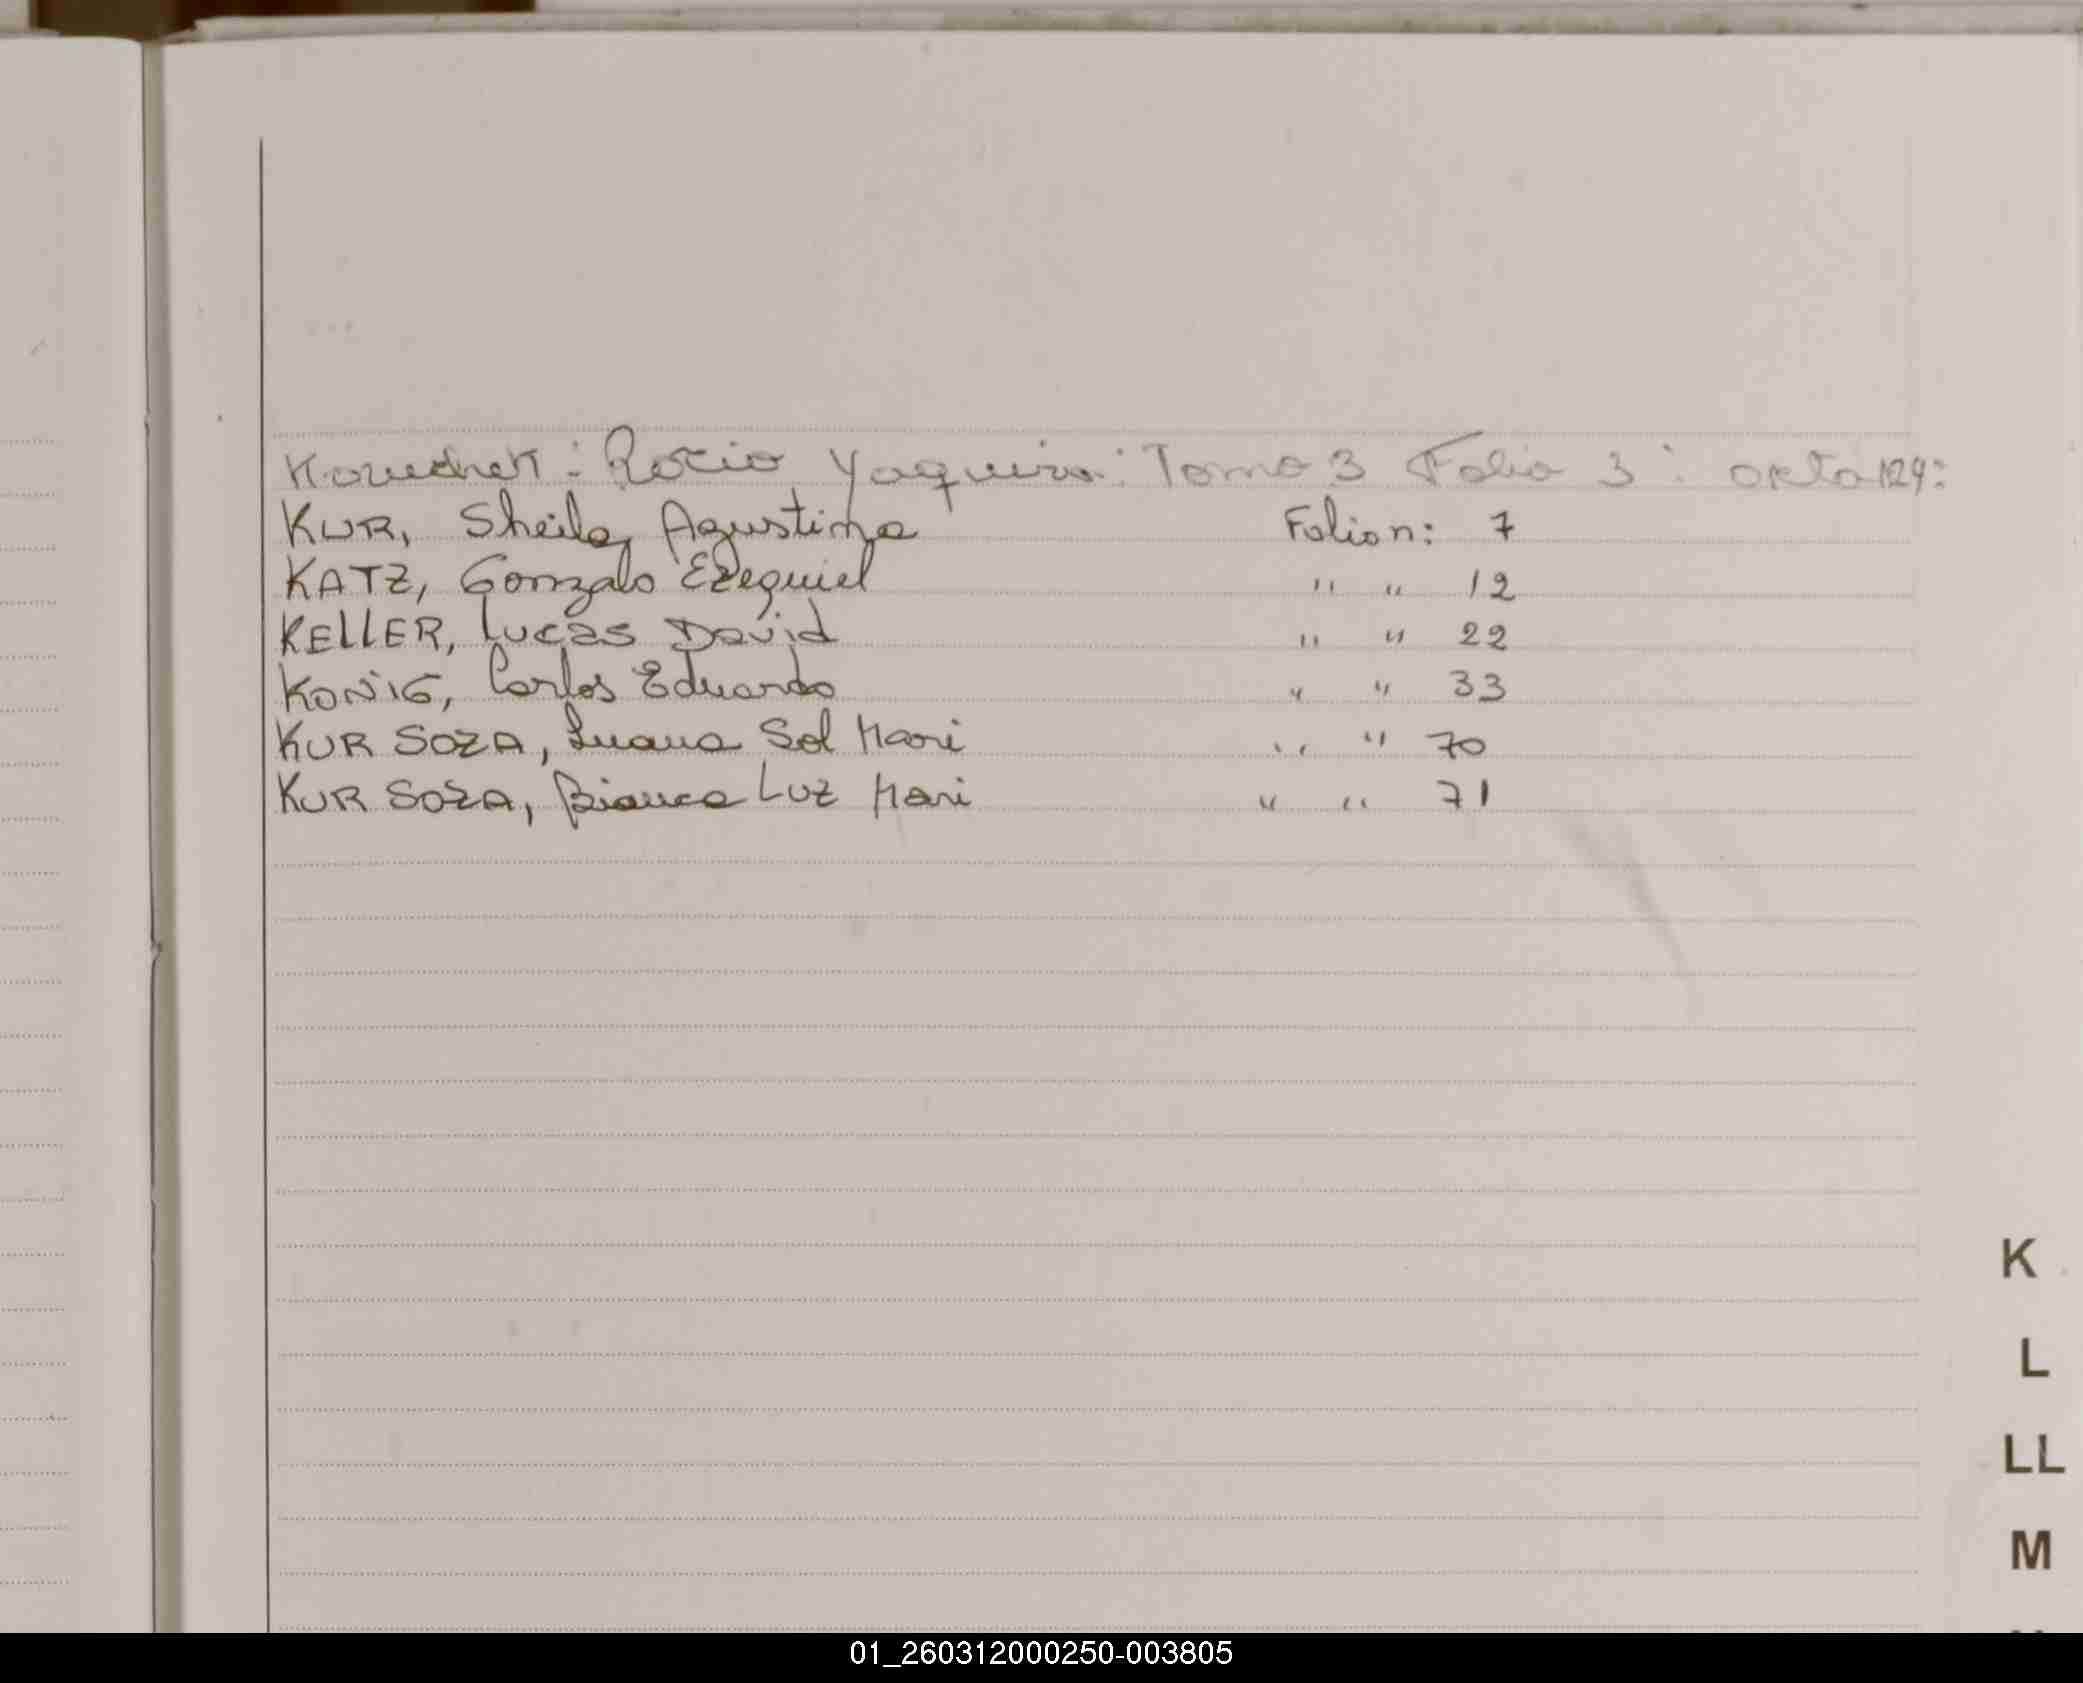 Kovuchek: Rocio Yaquira: Tomo 3 Folio 3: acta 124:
KUR, Sheila, Agustina Folio n: 7
KATZ, Gonzalo Ezequiel " " 12
KELLER, Lucas David " " 22
KONIG, Carlos Eduardo " " 33
KUR SOZA, Luana Sol Mari " " 70
KUR SOZA, Bianca Luz Mari " " 71
K
L
LL
M
01_260312000250-003805